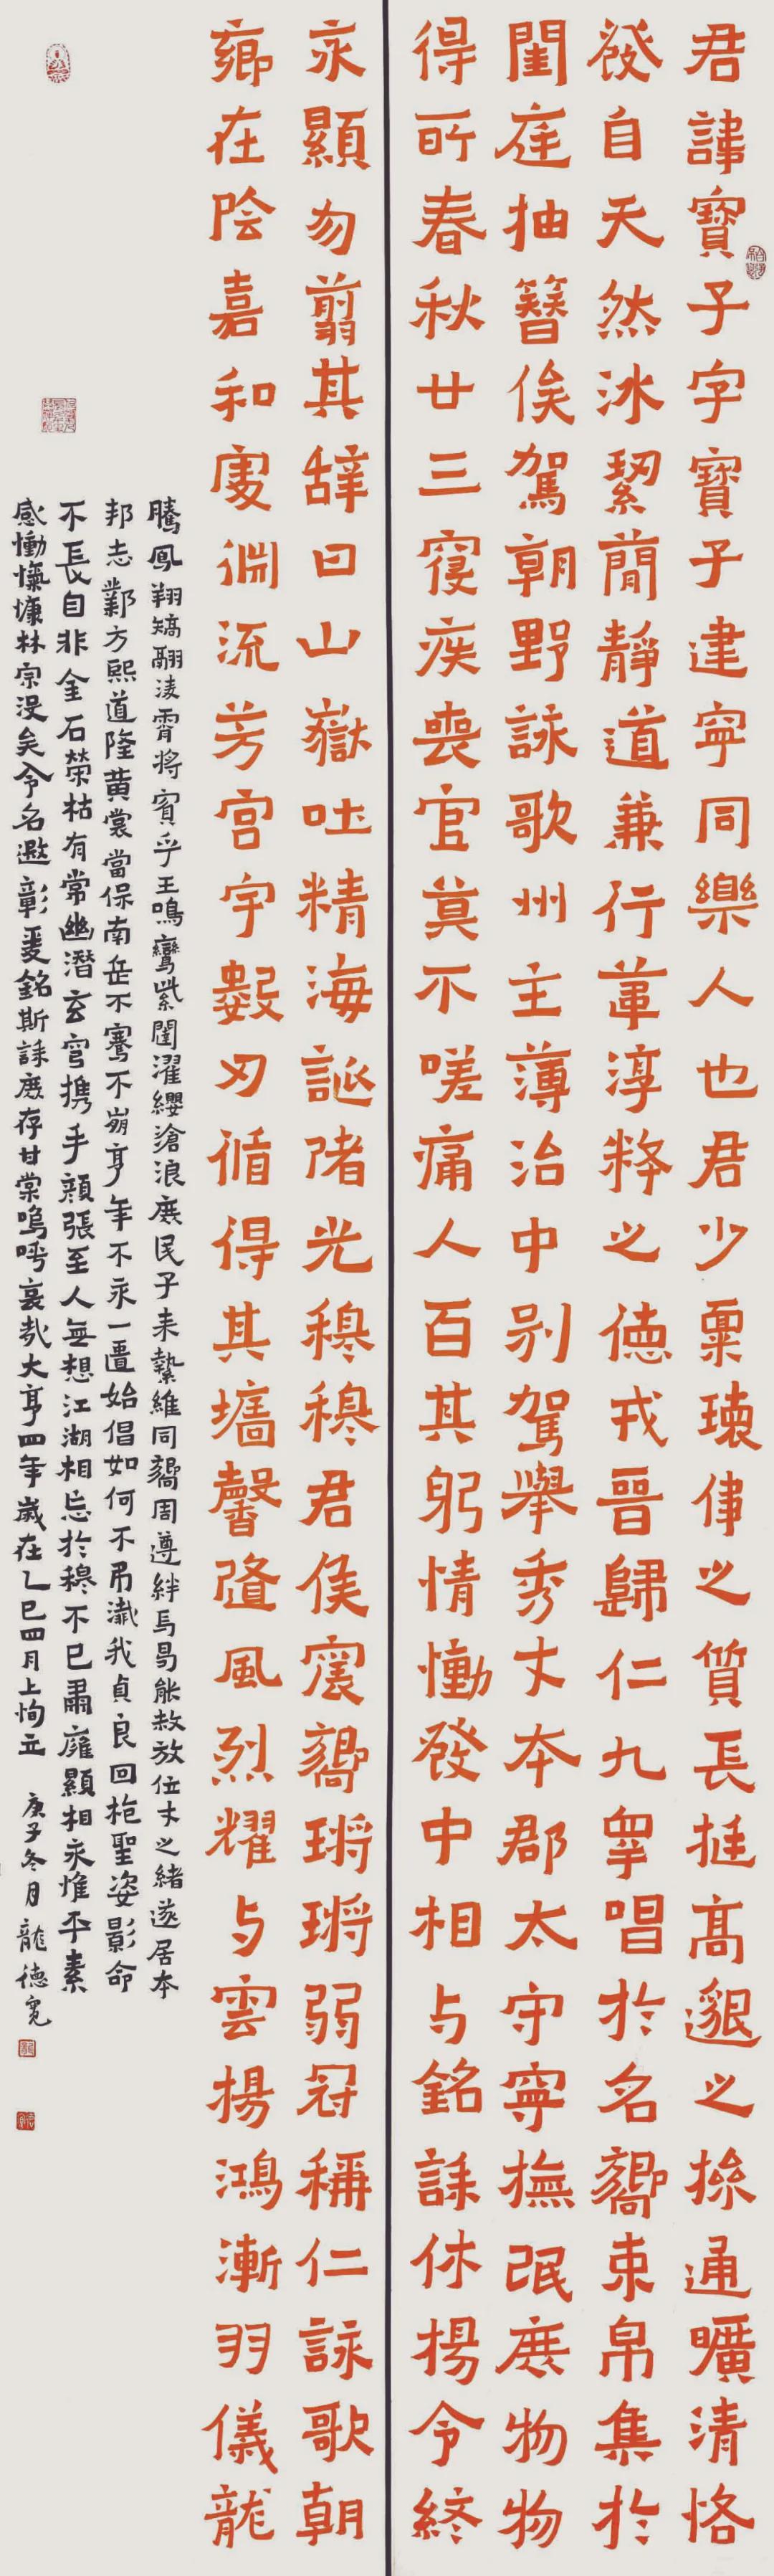 君諱寶子字寶子建寧同樂人也君少稟瓌偉之質長挺高邈之操通曠清恪
發自天然冰絜蕳靜道兼行葦淳粹之德戎晉歸仁九皋唱於名嚮束帛集於
閨庭抽簪俟駕朝野詠歌州主薄治中別駕舉秀才本郡太守寧撫氓庶物物
得所春秋廿三寑疾喪官莫不嗟痛人百其躬情慟發中相与銘誄休揚令終
永顯勿翦其辭曰山嶽吐精海誕陼光穆穆君侯震嚮鏘鏘弱冠稱仁詠歌朝
鄉在陰嘉和處淵流芳宮宇數刃循得其墻馨隨風烈耀与雲揚鴻漸羽儀龍
騰鳳翔矯翮淩霄將賓乎王鳴鸞紫闥濯纓滄浪庶民子來縶維同嚮周遵絆馬曷能赦放位才之緒遂居本
邦志鄴方熙道隆黄裳當保南岳不騫不崩享年不永一匱始倡如何不弔殲我貞良回抱聖姿影命
不長自非金石榮枯有常幽潛玄穹携手顏張至人無想江湖相忘於穆不已肅雍顯相永惟平素
感慟愾慷林宗没矣令名遐彰爰銘斯誄庶存甘棠嗚呼哀哉大亨四年歲在乙巳四月上恂立 庚子冬月龍德寬